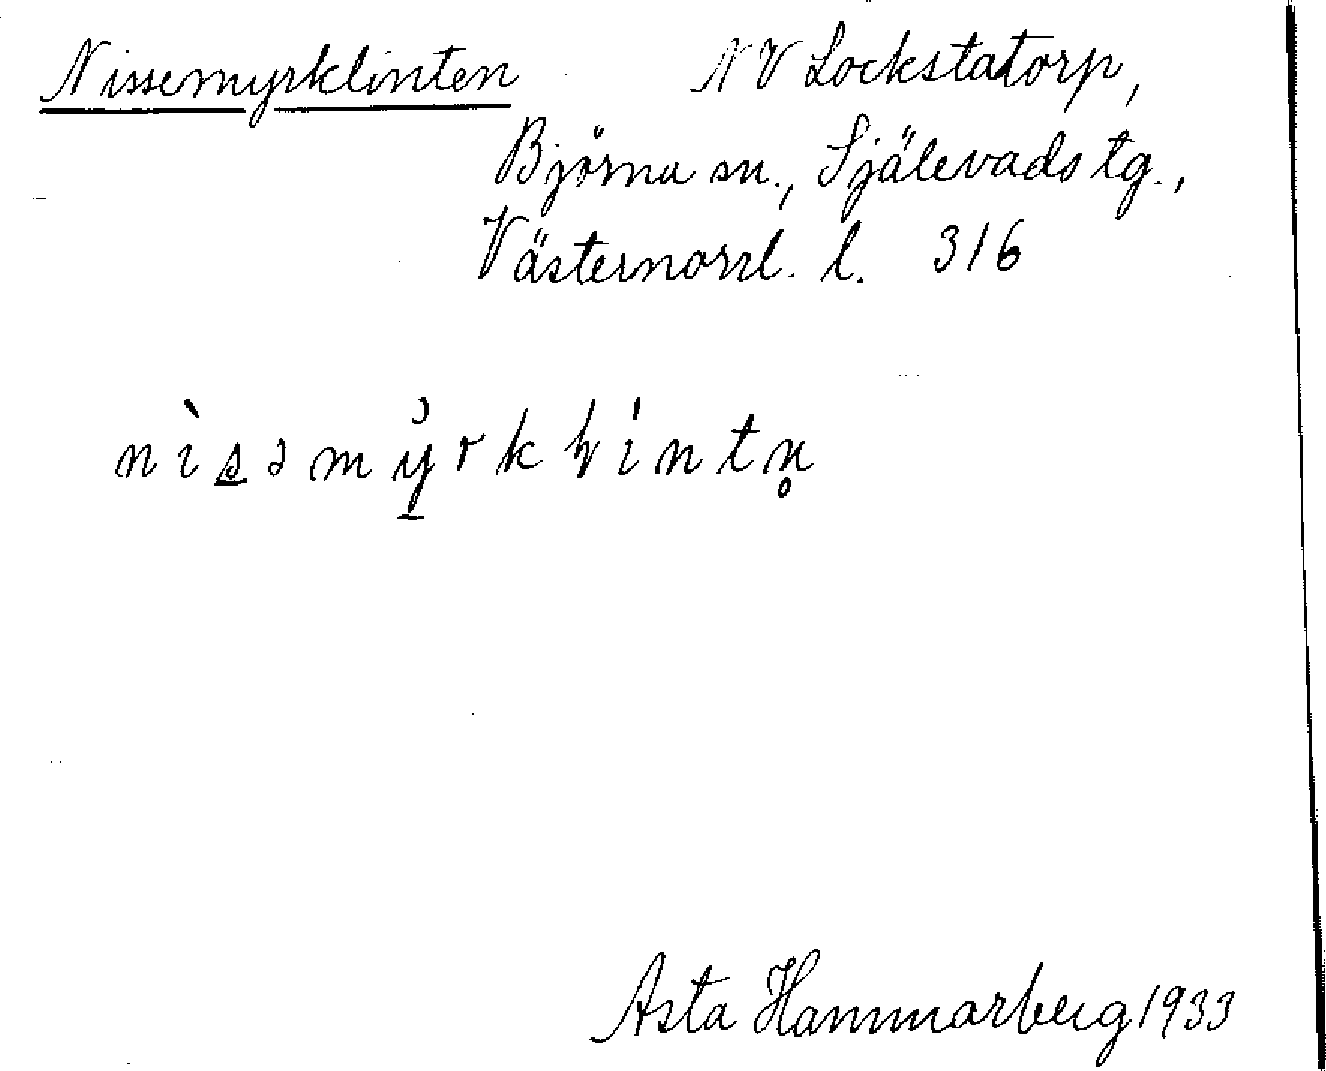 Nissemyrklinten NV Lockstatorp,
Björna sn., Själevads tg.,
Västernorrl. l. 316
nìs̲əmy̲̆rkⱶıntn̥
Asta Hammarberg 1933